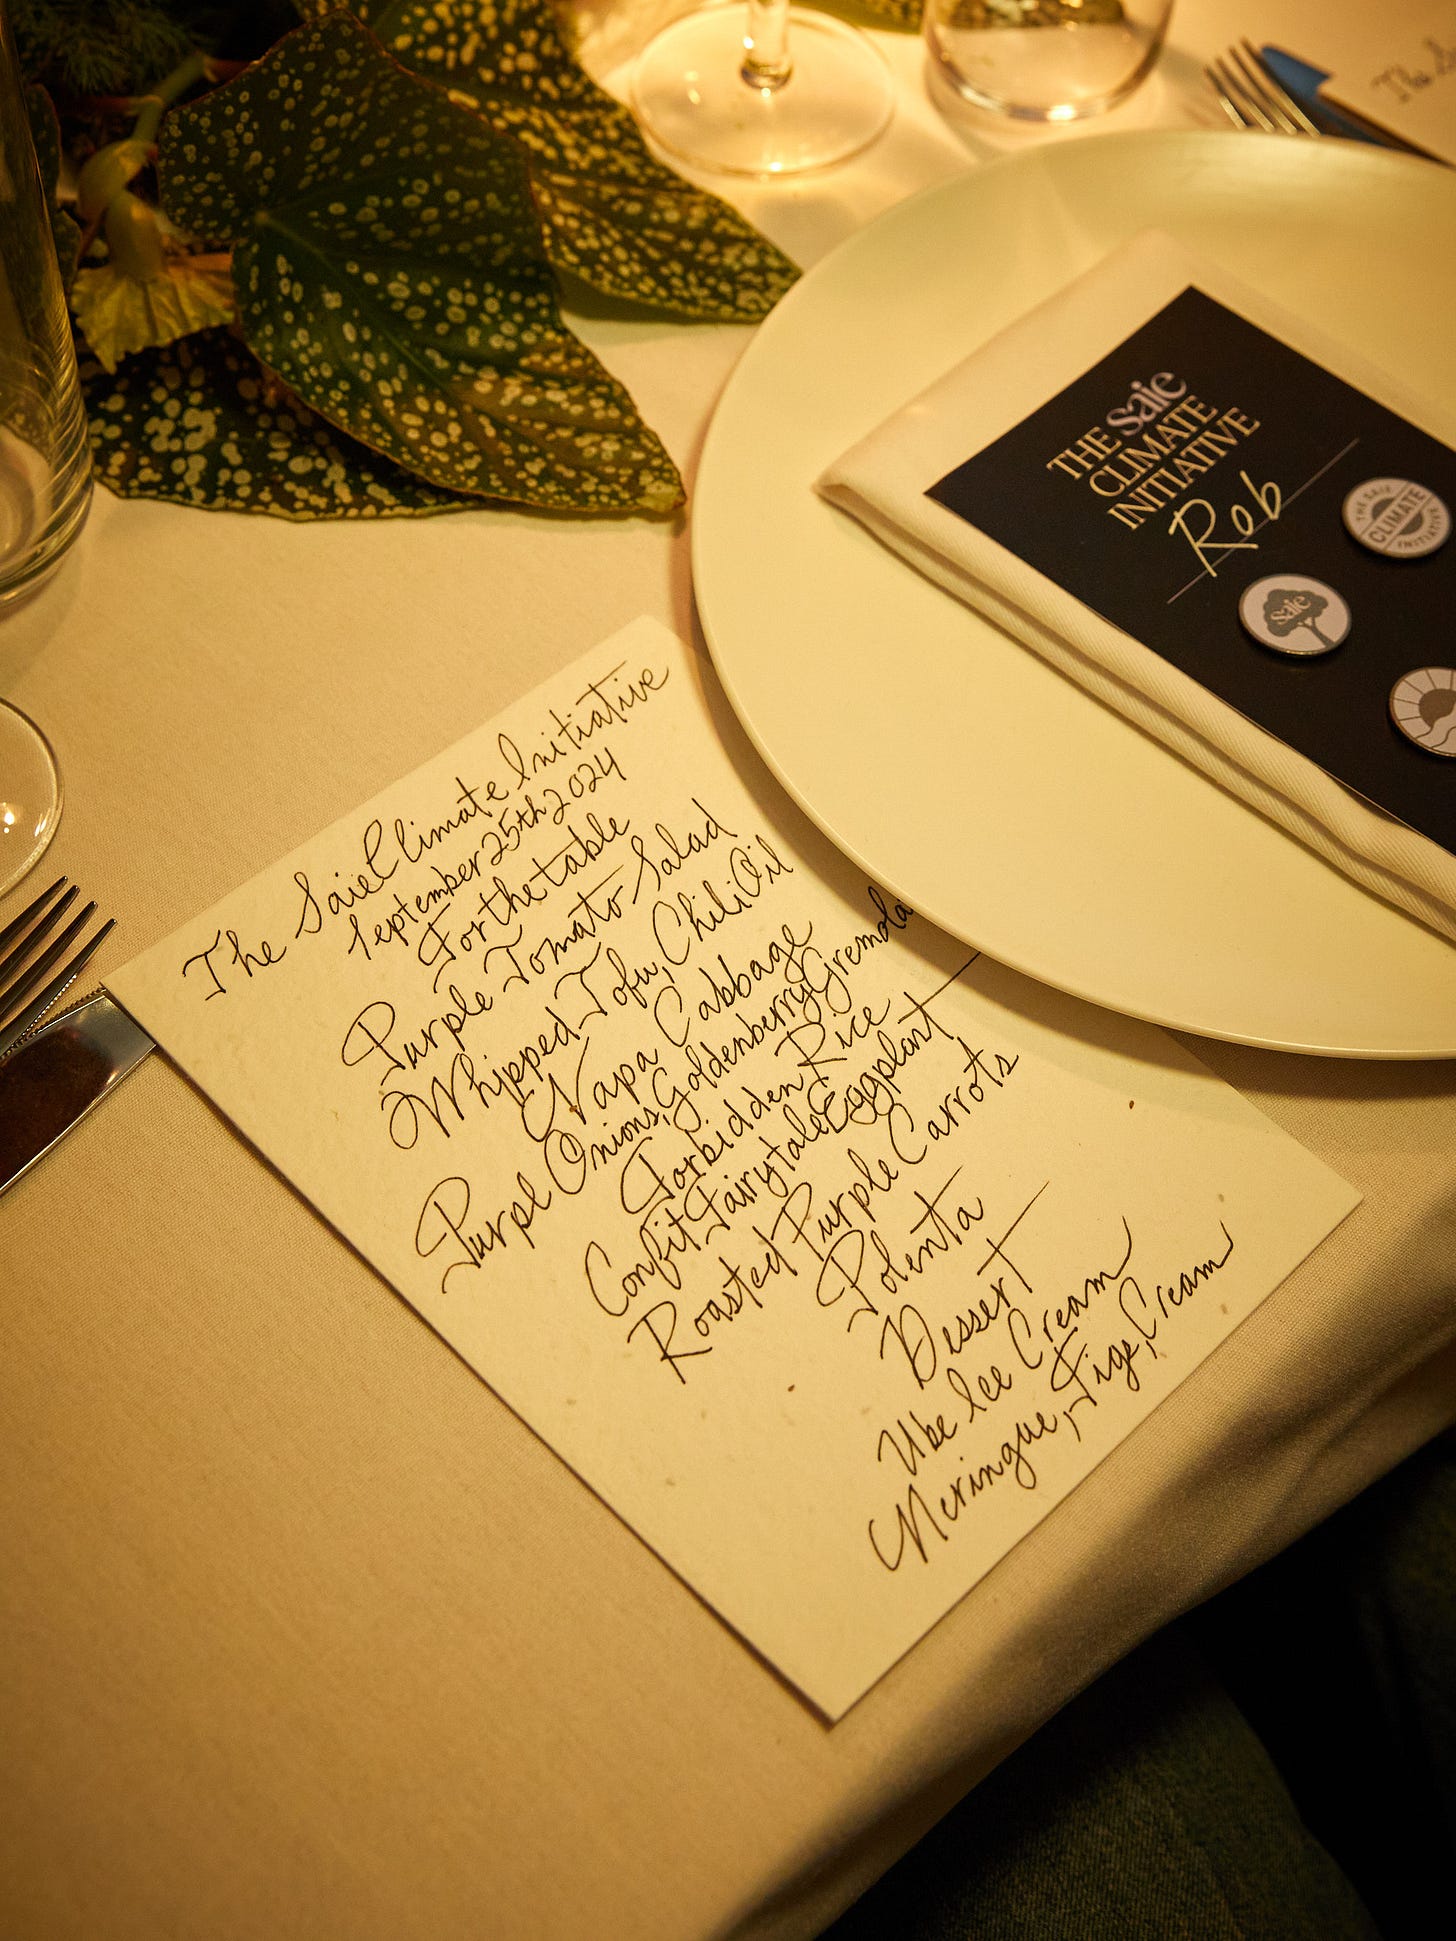 The Saie Climate Initiative
September 25th 2024
For the table
Purple Tomato Salad
Whipped Tofu, Chili Oil
Napa Cabbage
Purpl Onions, Goldenberry Gremola
Forbidden Rice
Confit Fairytale Eggplant
Roasted Purple Carrots
Polenta
Dessert
Ube Ice Cream
Meringue, Figs, Cream
THE saie
CLIMATE
INITIATIVE
Rob
THE SAIE
CLIMATE
INITIATIVE
saie
The